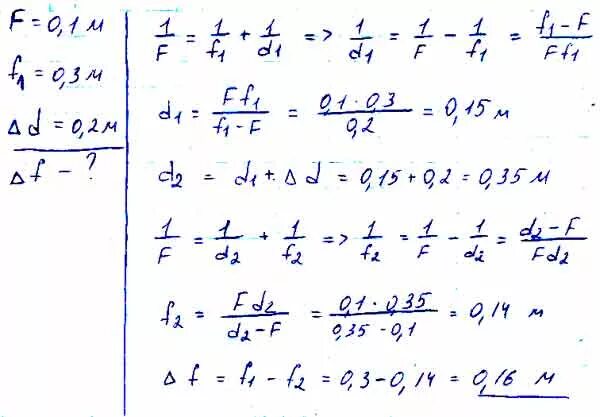 F = 0,1 м
f₁ = 0,3 м
Δd = 0,2 м
Δf - ?
1/F = 1/f₁ + 1/d₁ => 1/d₁ = 1/F - 1/f₁ = (f₁-F)/(Ff₁)
d₁ = (Ff₁)/(f₁-F) = (0,1·0,3)/(0,2) = 0,15 м
d₂ = d₁ + Δd = 0,15 + 0,2 = 0,35 м
1/F = 1/d₂ + 1/f₂ => 1/f₂ = 1/F - 1/d₂ = (d₂-F)/(Fd₂)
f₂ = (Fd₂)/(d₂-F) = (0,1·0,35)/(0,35-0,1) = 0,14 м
Δf = f₁ - f₂ = 0,3 - 0,14 = 0,16 м